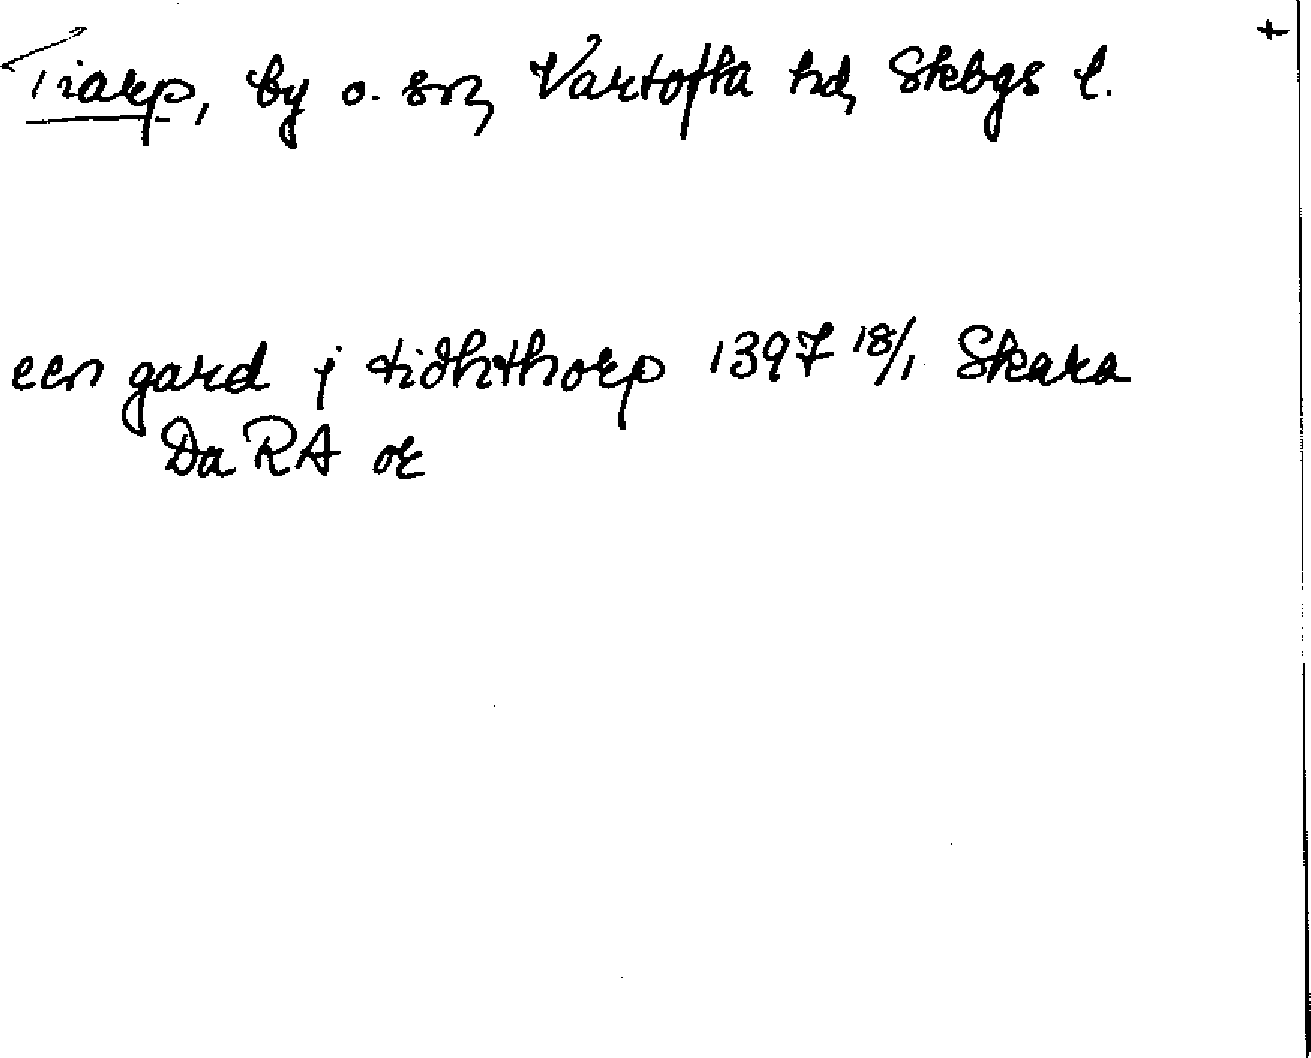 Tiarp, by o. sn, Vartofta hd, Skbgs l. +
een gard j tidhthorp 1397 18/1 Skara
Da RA or